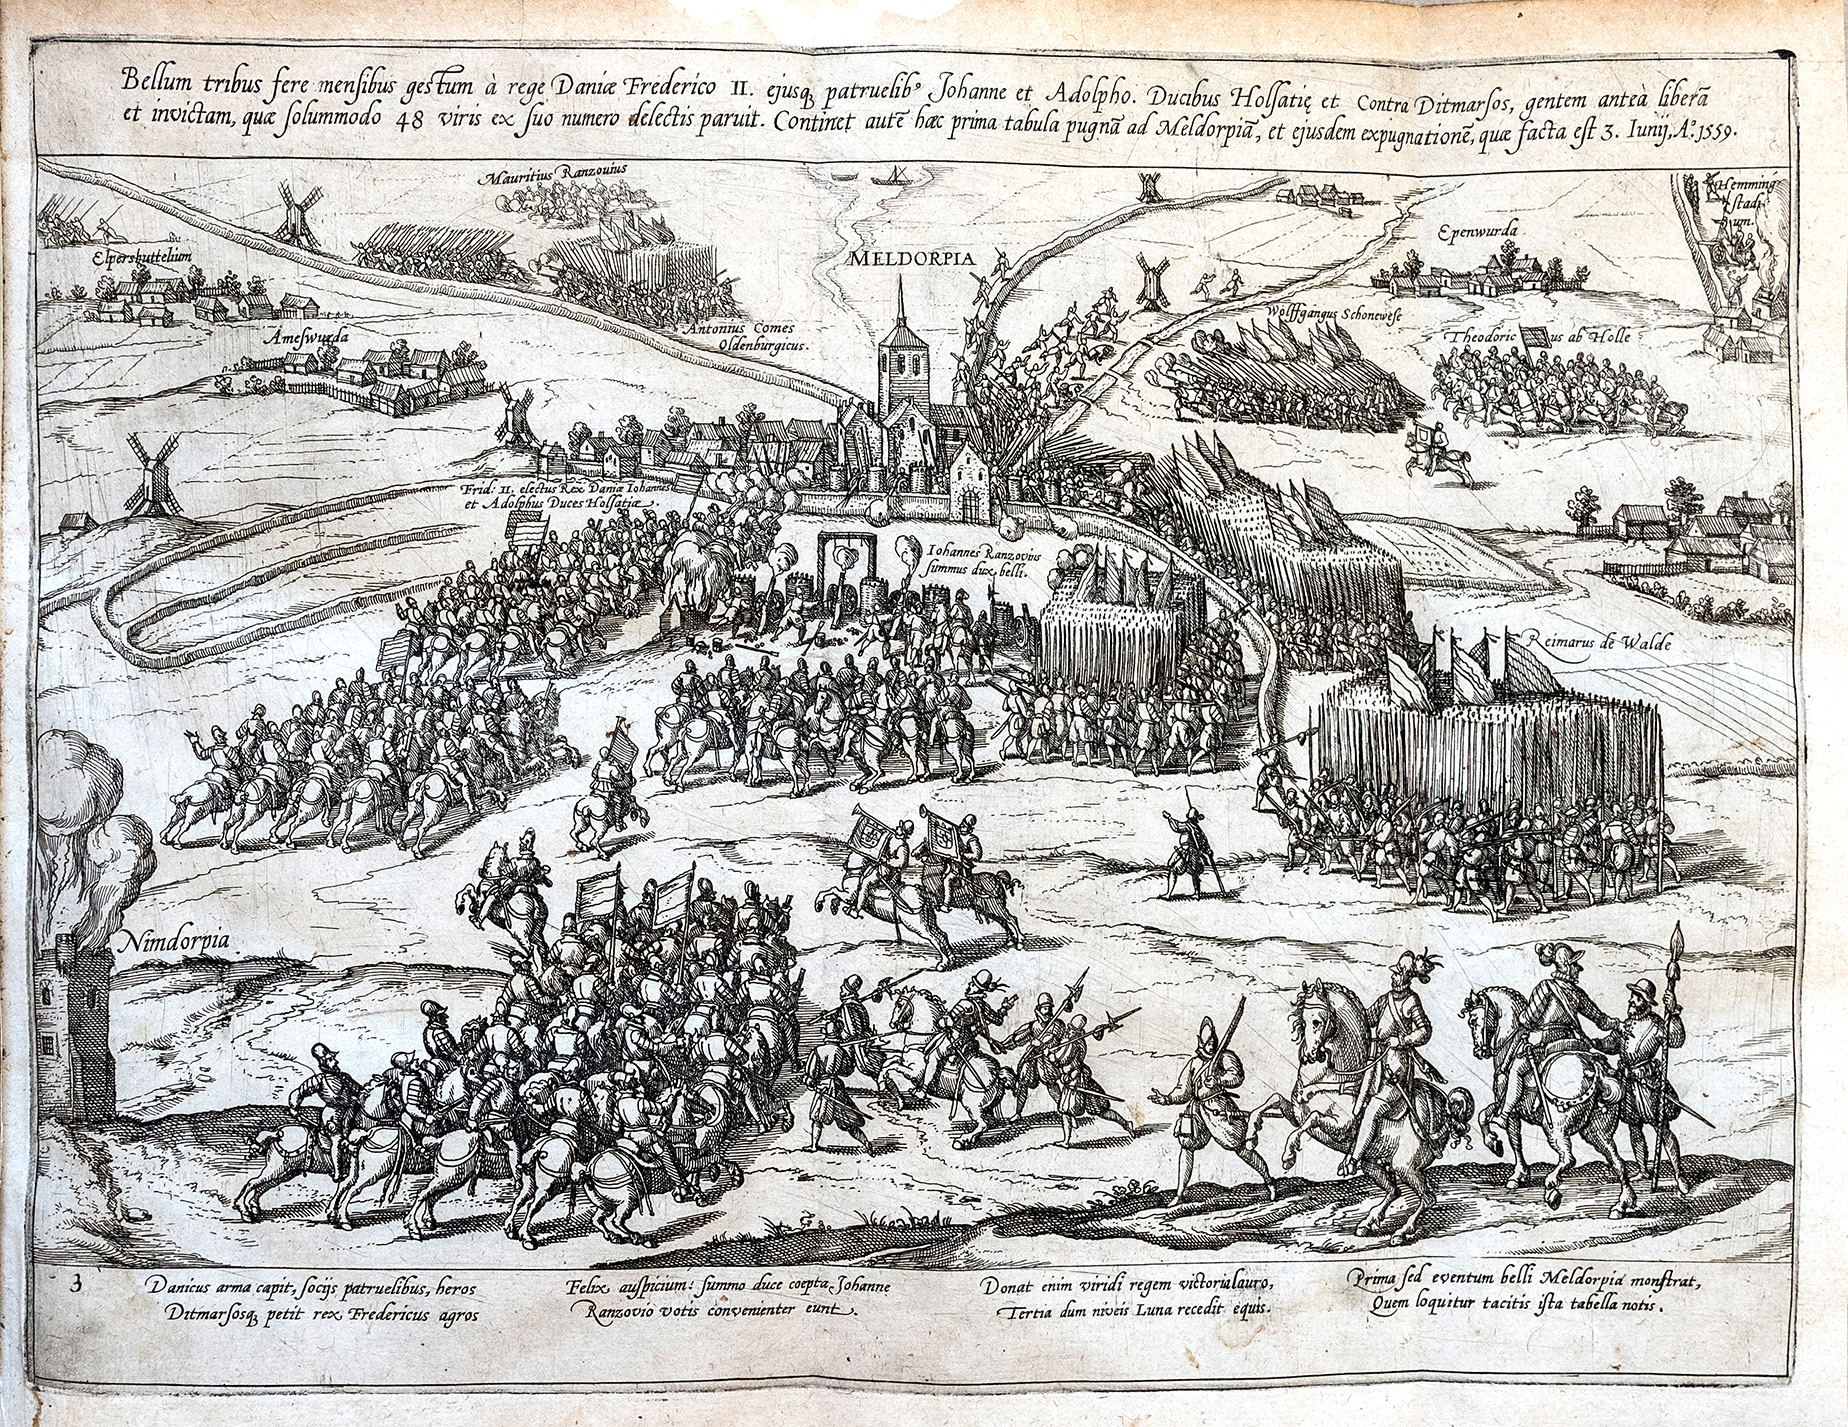 Bellum tribus fere mensibus gestum à rege Daniæ Frederico II. ejusq, patruelib9 Johanne et Adolpho. Ducibus Holsatię et Contra Ditmarsos, gentem anteà liberā
et invictam, quæ solummodo 48 viris ex suo numero delectis paruit. Continet autē hæc prima tabula pugnā ad Meldorpiā, et ejusdem expugnationē, quæ facta est 3. Iunij, Ao. 1559.
Mauritius Ranzouius
Hemming
stadi
um.
Elpersbuttelium
Epenwurda
MELDORPIA
Wolffgangus Schonewese
Antonius Comes
Oldenburgicus.
Ameswurda
Theodoricus ab Holle
Frid: II. electus Rex Daniæ Iohannes
et Adolphus Duces Holsatiæ.
Iohannes Ranzovius
summus dux belli.
Reimarus de Walde
Nimdorpia
3
Danicus arma capit, socijs patruelibus, heros
Ditmarsosq, petit rex Fredericus agros
Felix auspicium: summo duce coepta Johanne
Ranzovio votis convenienter eunt.
Donat enim viridi regem victoria lauro,
Tertia dum niveis Luna recedit equis.
Prima sed eventum belli Meldorpia monstrat,
Quem loquitur tacitis ista tabella notis.